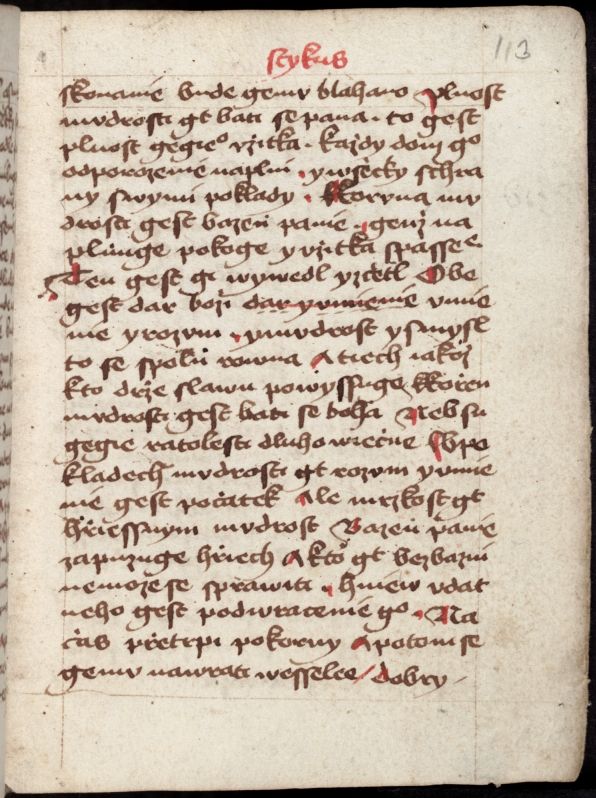 sticus
113
skonanie bude gemu blahano plnost
mudrosti gt bati se pana · to gest
plnost gegieo vzitka · kazdy dom go
odporozenie naplni · y wsecky schra
ny swymi poklady · Koruna mu
drosti gest bazen panie · genz na
plnuge pokoge y vzitka spassee
Ten gest gi wywedl y zcetl Obe
gest dar bozi dar y vmienie vmie
nie y rozum · y mudrost y smysl
to se spolu rowna A tiech iakoz
kto drze slawu powyssuge · Koren
mudrosti gest bati se boha Neb su
gegie ratolesti dluhowiecne W po
kladech mudrosti gt rozum y vmie
nie gest pocatek Ale mrzkost gt
hriessnym mudrost Bazen panie
zapuzuge hriech A kto gt bezbazni
nemoze se sprawiti · hniew vdat
neho gest podwracenie go · Na
cas pretrpi pokorny A potom se
gemu nawrati wesselee / dobry